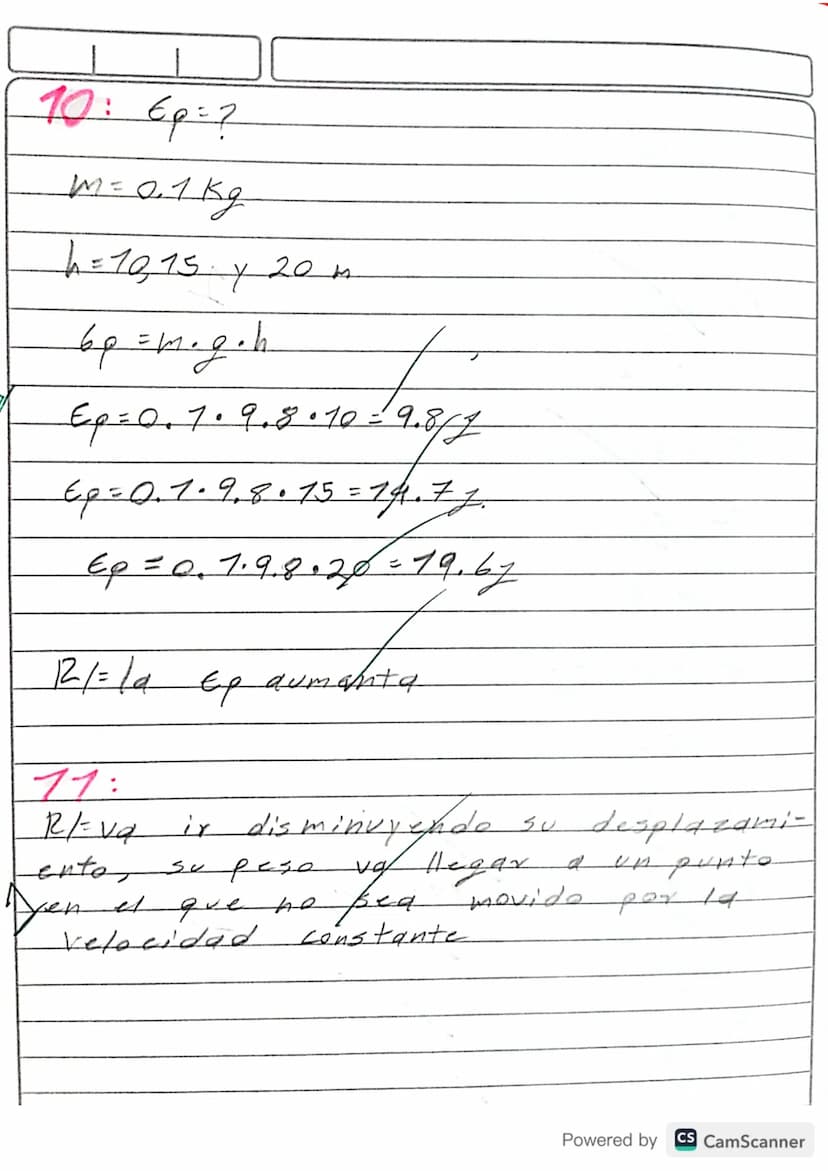 10: Ep=?
m=0.1 Kg
h=10,15 y 20 m
Ep=m.g.h
Ep=0.1.9.8.10=9.8 J
Ep=0.1.9.8.15=14.7 J.
Ep=0.1.9.8.20=19.6 J
R/=la Ep aumenta
11:
R/=va ir disminuyendo su desplazami-
ento, su peso va llegar a un punto
en el que no sea movido por la
velocidad constante
Powered by CS CamScanner